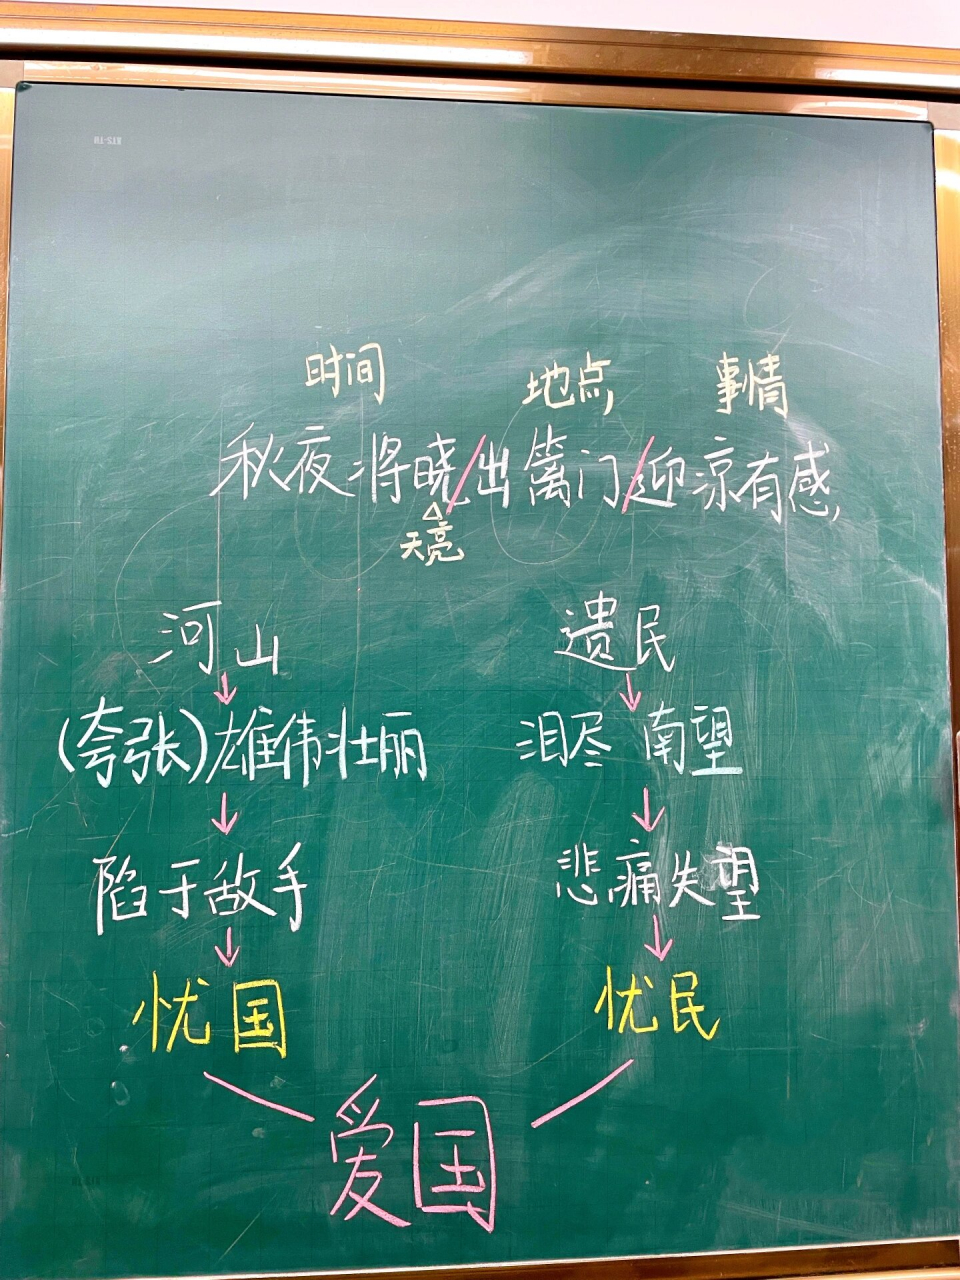 时间 地点 事情
秋夜将晓/出篱门/迎凉有感
天亮
河山 遗民
(夸张)雄伟壮丽 泪尽 南望
陷于敌手 悲痛失望
忧国 忧民
爱国